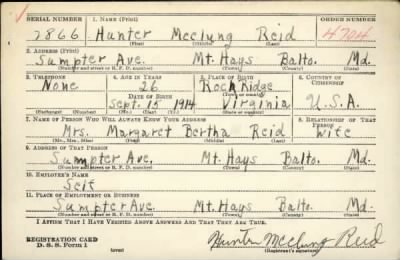 SERIAL NUMBER 1. NAME (Print) ORDER NUMBER
2866 Hunter Mcclung Reid 4704
(First) (Middle) (Last)
2. ADDRESS (Print)
Sumpter Ave. Mt. Hays Balto. Md.
(Number and street or R. F. D. number) (Town) (County) (State)
3. TELEPHONE 4. AGE IN YEARS 5. PLACE OF BIRTH 6. COUNTRY OF CITIZENSHIP
None 26 Rock Ridge
DATE OF BIRTH (Town or county)
Sept. 15 1914 Virginia U.S.A.
(Mo.) (Day) (Yr.) (State or country)
7. NAME OF PERSON WHO WILL ALWAYS KNOW YOUR ADDRESS 8. RELATIONSHIP OF THAT PERSON
Mrs. Margaret Bertha Reid Wife
(Mr., Mrs., Miss) (First) (Middle) (Last)
9. ADDRESS OF THAT PERSON
Sumpter Ave. Mt. Hays Balto. Md.
(Number and street or R. F. D. number) (Town) (County) (State)
10. EMPLOYER'S NAME
Self
11. PLACE OF EMPLOYMENT OR BUSINESS
Sumpter Ave. Mt. Hays Balto. Md.
(Number and street or R. F. D. number) (Town) (County) (State)
I AFFIRM THAT I HAVE VERIFIED ABOVE ANSWERS AND THAT THEY ARE TRUE.
REGISTRATION CARD
D. S. S. FORM 1 (over) Hunter Mcclung Reid
(Registrant's signature)